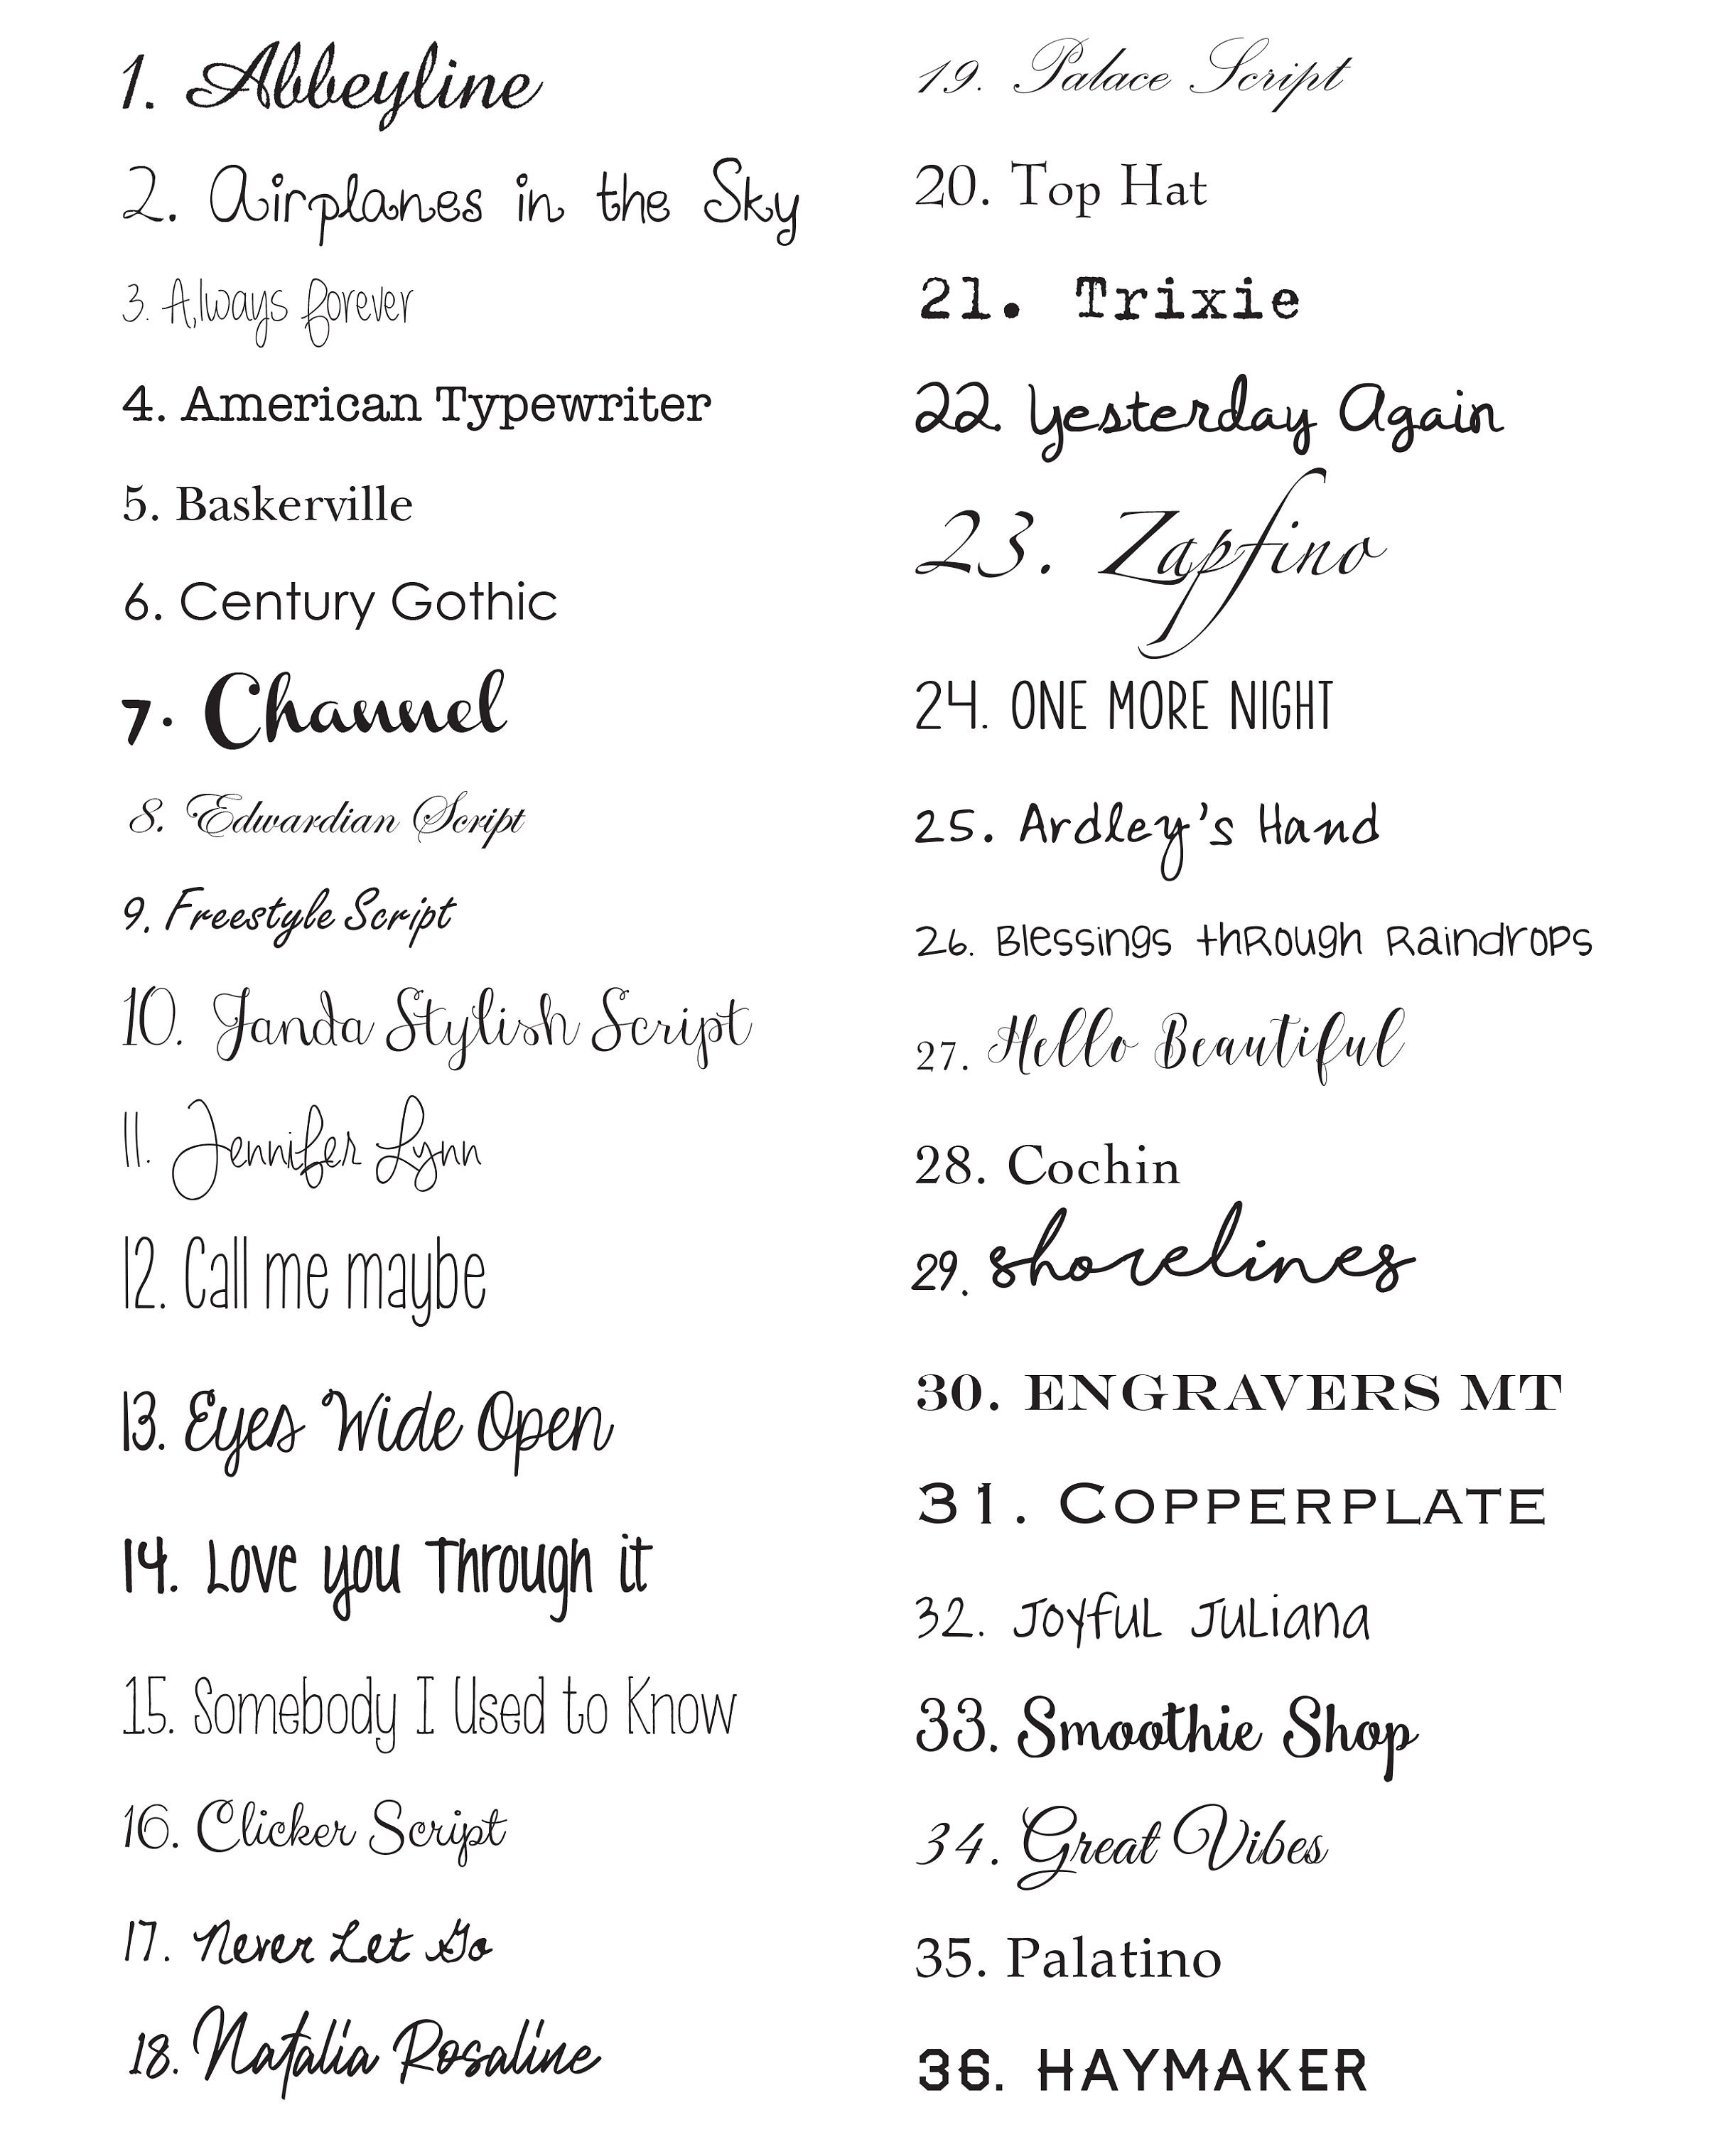 1. Abbeyline
2. Airplanes in the Sky
3. Always forever
4. American Typewriter
5. Baskerville
6. Century Gothic
7. Channel
8. Edwardian Script
9. Freestyle Script
10. Janda Stylish Script
11. Jennifer Lynn
12. Call me maybe
13. Eyes Wide Open
14. Love you Through it
15. Somebody I Used to Know
16. Clicker Script
17. Never Let Go
18. Natalia Rosaline
19. Palace Script
20. Top Hat
21. Trixie
22. Yesterday Again
23. Zapfino
24. ONE MORE NIGHT
25. Ardley's Hand
26. Blessings thRough Raindrops
27. Hello Beautiful
28. Cochin
29. shorelines
30. ENGRAVERS MT
31. COPPERPLATE
32. Joyful Juliana
33. Smoothie Shop
34. Great Vibes
35. Palatino
36. HAYMAKER